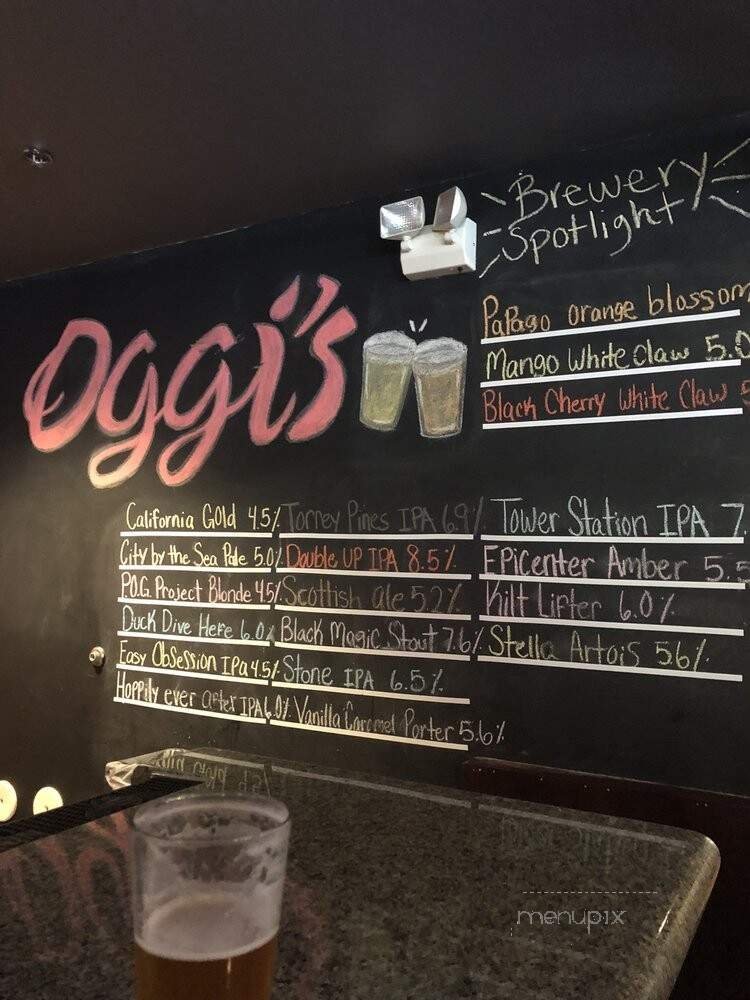 Brewery
Spotlight
Oggi's
Papago orange blossom
Mango White Claw 5.0
Black Cherry White Claw 5
California Gold 4.5%
City by the Sea Pale 5.0%
P.O.G. Project Blonde 4.5%
Duck Dive Hefe 6.0%
Easy Obsession IPA 4.5%
Hoppily ever after IPA 6.0%
Torrey Pines IPA 6.9%
Double UP IPA 8.5%
Scottish ale 5.2%
Black Magic Stout 7.6%
Stone IPA 6.5%
Vanilla Caramel Porter 5.6%
Tower Station IPA 7.
Epicenter Amber 5.5
Kilt Lifter 6.0%
Stella Artois 5.6%
menupix